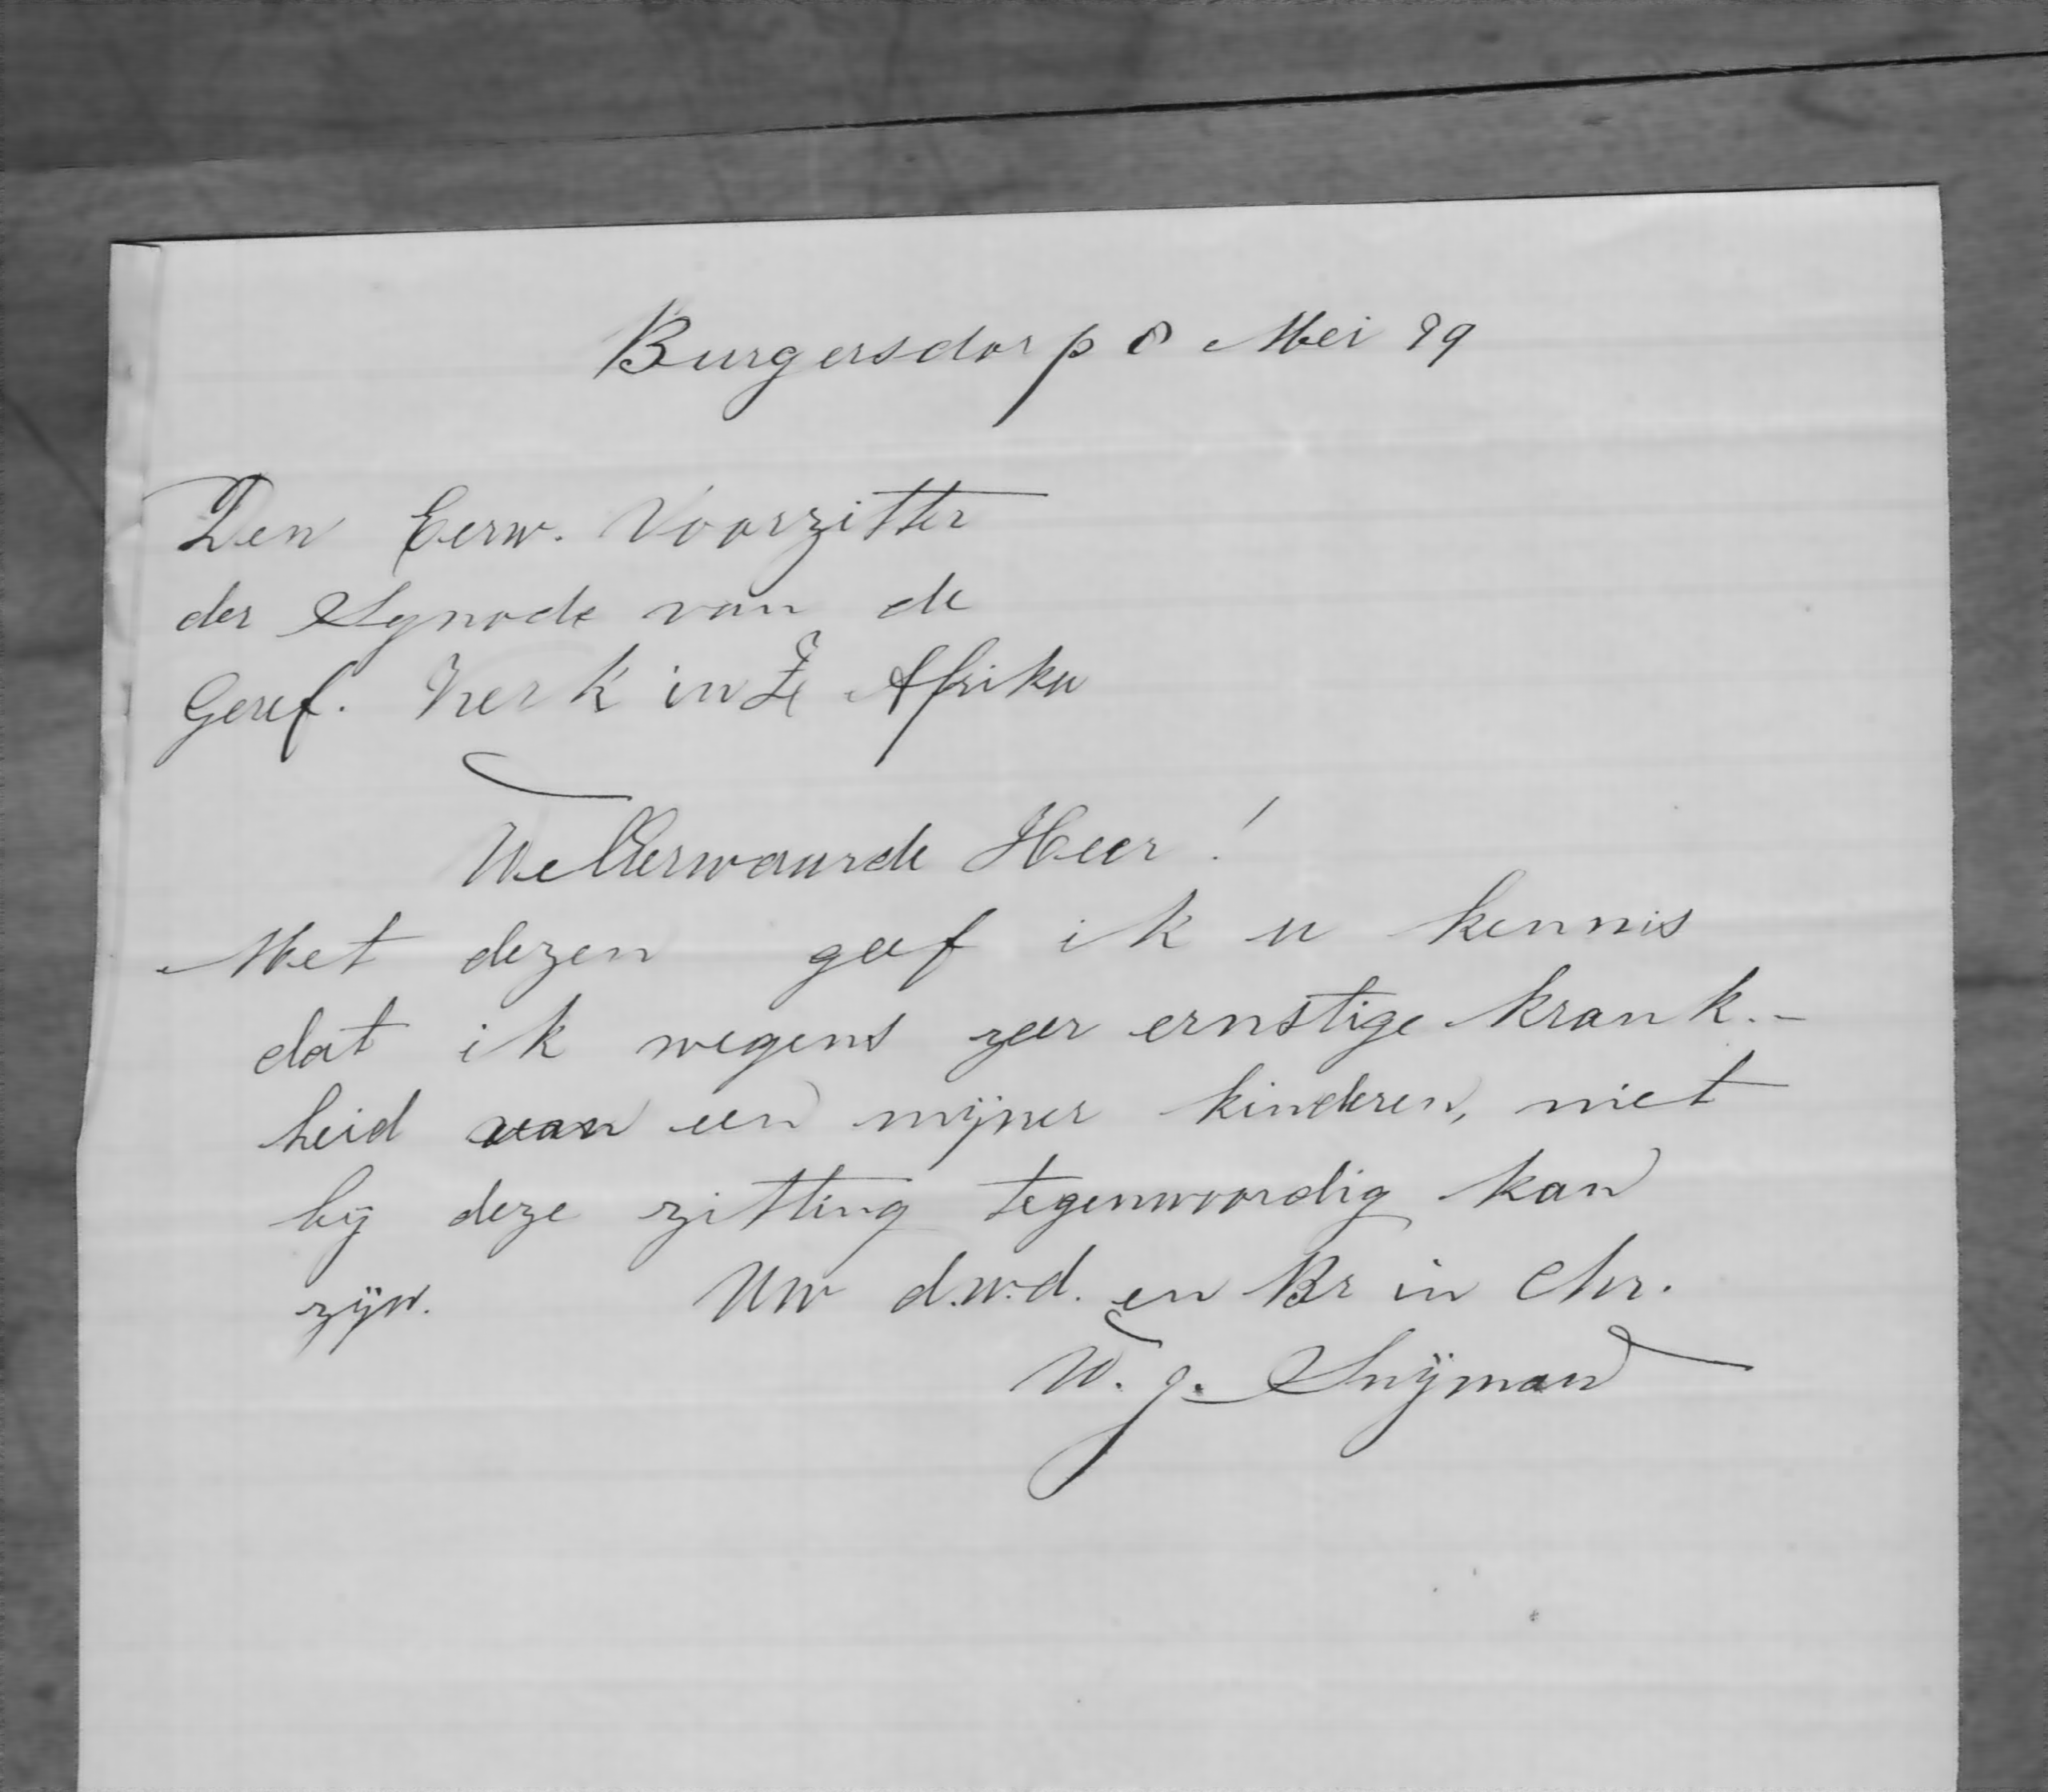 Burgersdorp 8 Mei 99
Den Eerw. Voorzitter
der Synode van de
Geref. Kerk in Z Afrika
WelEerwaarde Heer!
Met dezen geef ik u kennis
dat ik wegens zeer ernstige krank-
heid van een mijner kinderen, niet
bij deze zitting tegenwoordig kan
zijn. Uw d.w.d. en Br in Chr.
W. J. Snijman